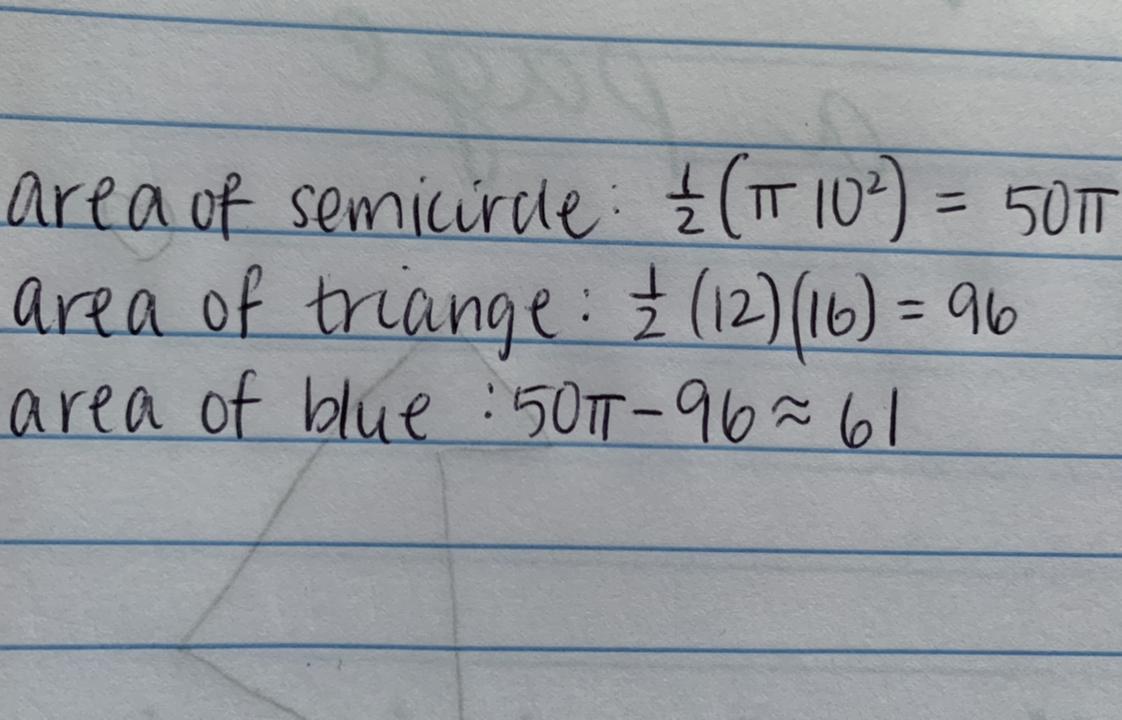 area of semicircle: ½(π 10²) = 50π
area of triange: ½ (12)(16) = 96
area of blue : 50π - 96 ≈ 61